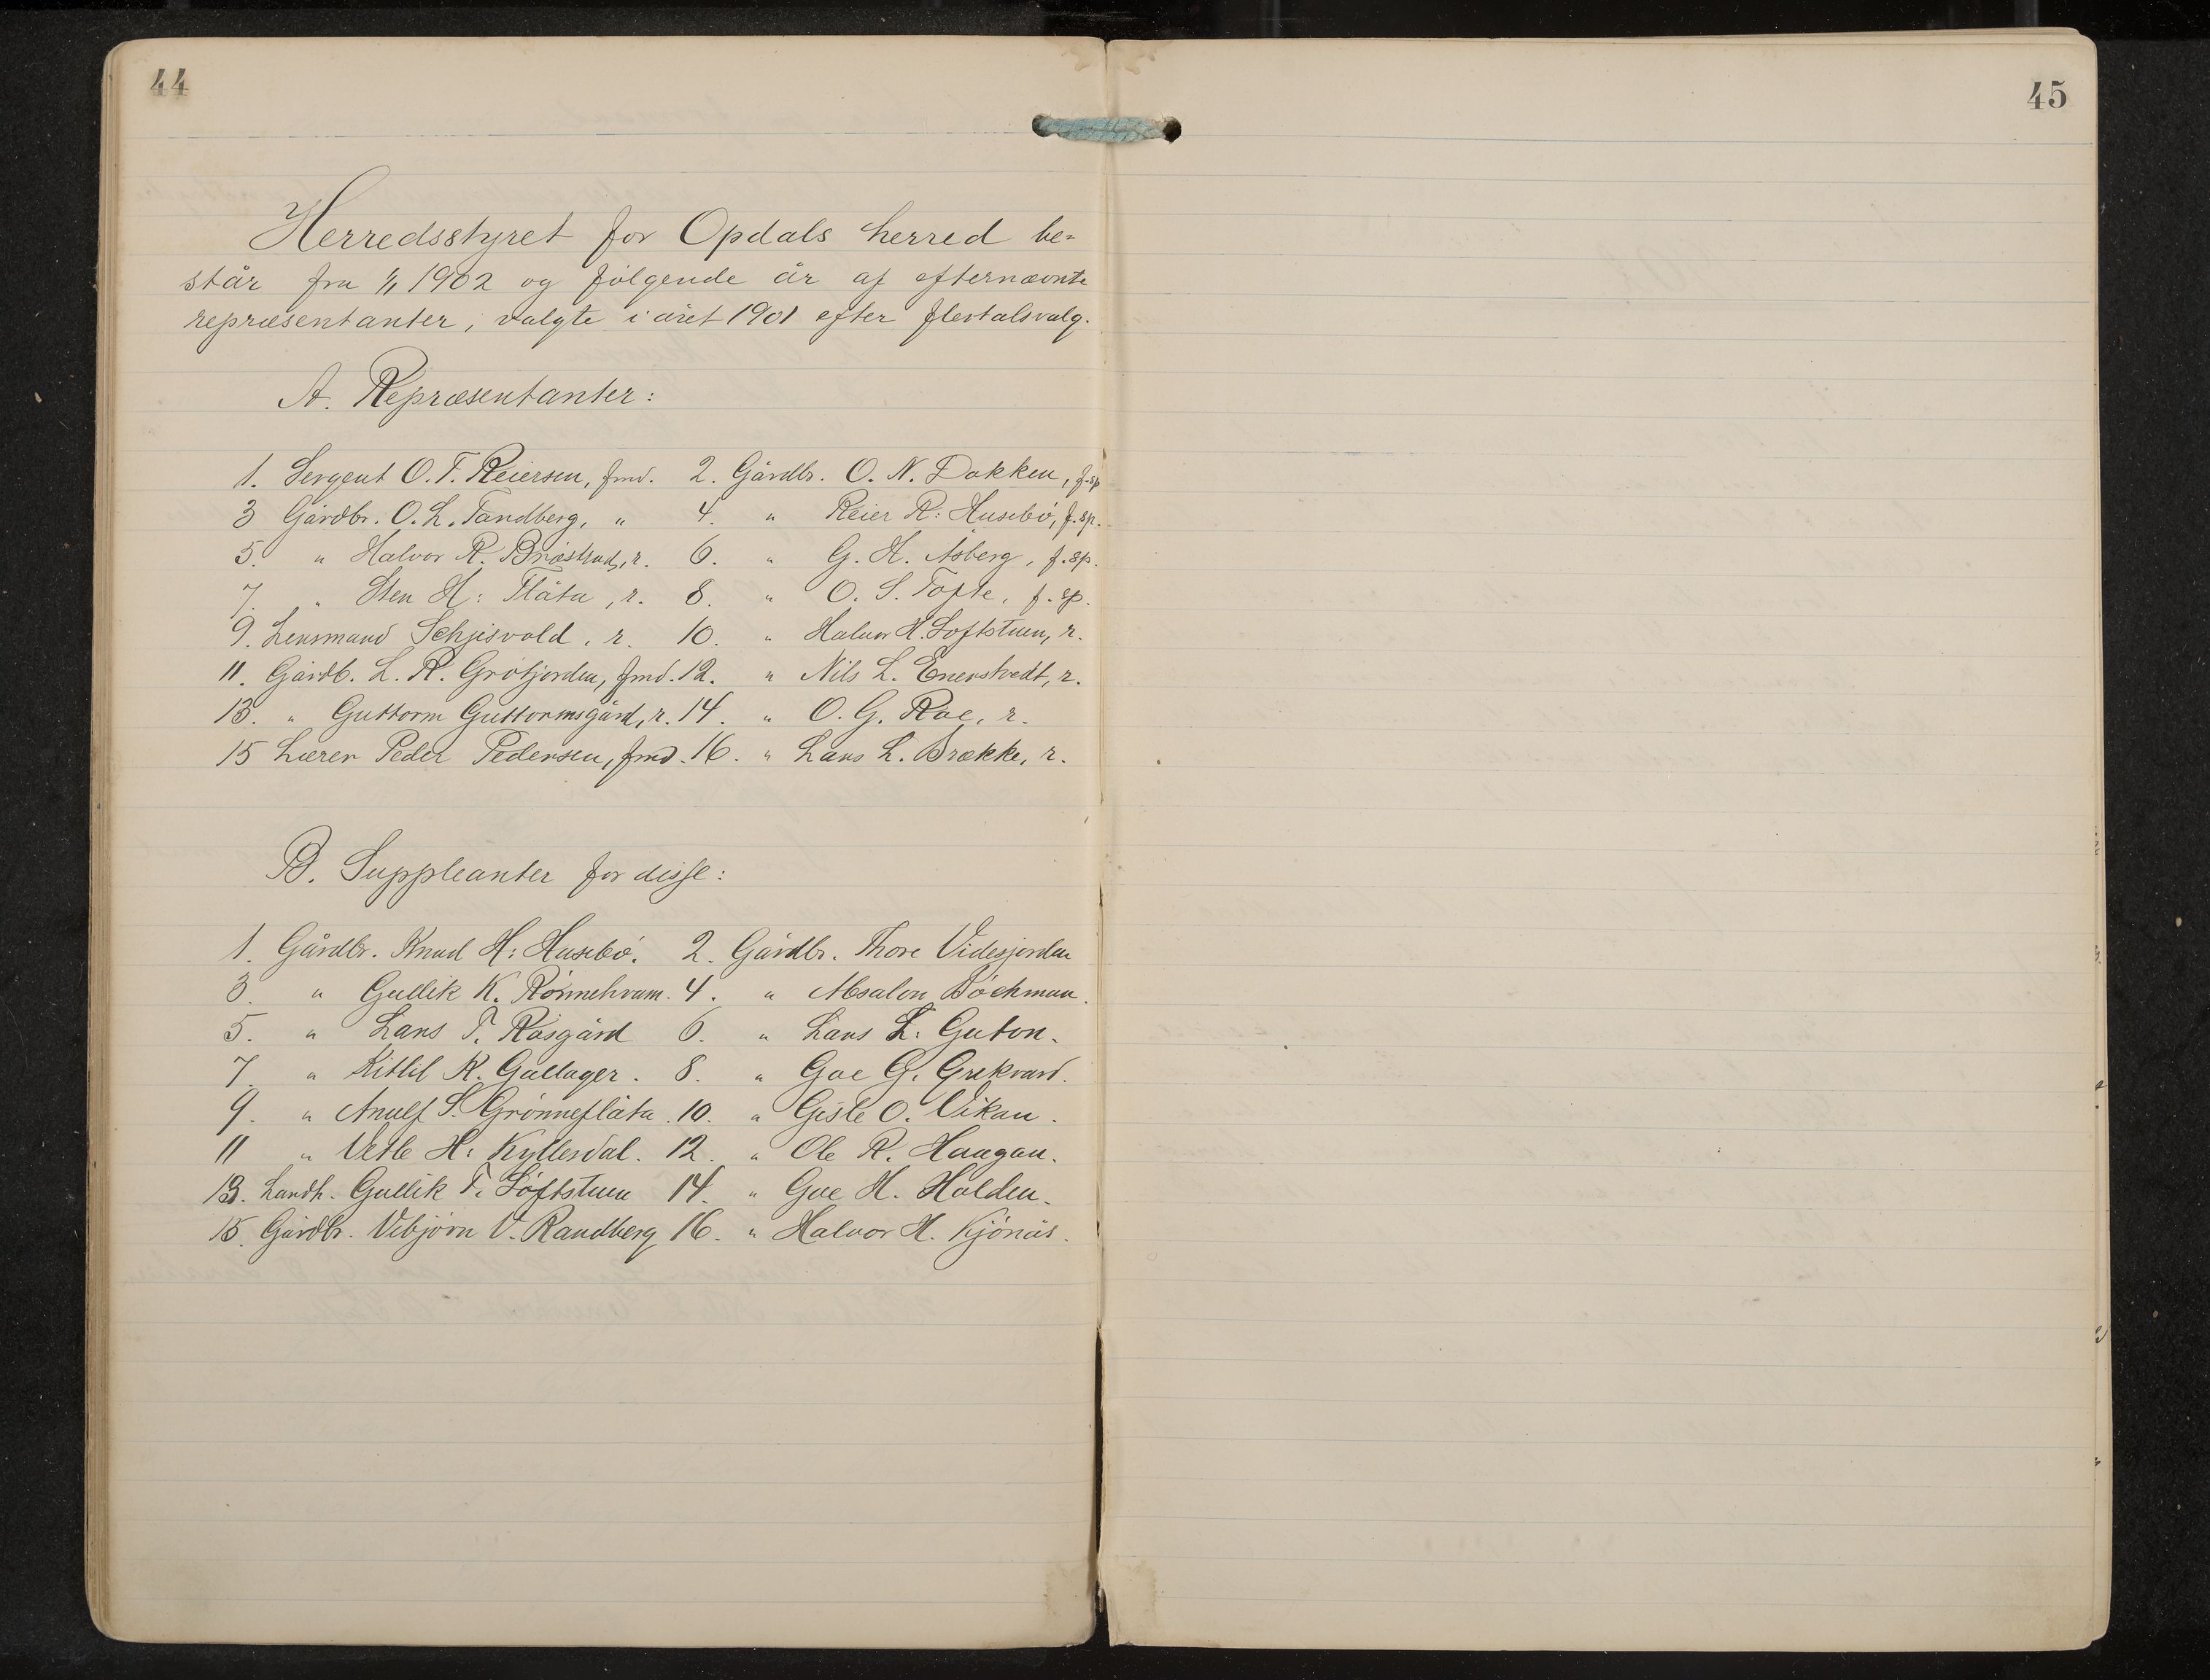 44
45
Herredsstyret for Opdals herred be-
står fra 1/1 1902 og følgende år af efternævnte
repræsentanter, valgte i året 1901 efter flertalsvalg.
A. Repræsentanter:
1. Sergent O. T. Reiersen, fmd. 2. Gårdbr. O. N. Dokken, f. sp
3 Gårdbr. O. L. Tandberg, " 4. " Reier R: Husebø, f. sp.
5. " Halvor R. Brøstrud, r. 6. " G. H. Åsberg, f. sp.
7. " Sten H: Flåta, r. 8. " O. S. Tofte, f. sp.
9. Lensmand Schjisvold, r. 10. " Halvor H. Loftstuen, r.
11. Gårdb. L. R. Grøtjorden, fmd. 12. " Nils L. Enerstvedt, r.
13. " Guttorm Guttormsgård, r. 14. " O. G. Roe, r.
15 Lærer Peder Pedersen, fmd. 16. " Lars L. Brække, r.
B. Suppleanter for disse:
1. Gårdbr. Knud H: Husebø. 2. Gårdbr. Thore Videsjorden
3. " Gullik K. Rønnehvam. 4. " Absalon Bøckman.
5. " Lars T. Råsgård 6. " Lars L. Guton.
7. " Kittil K. Gallager. 8. " Goe G. Grekvard.
9. " Anulf S. Grønneflåta. 10. " Gisle O. Vikan.
11 " Vetle H: Kyllesdal. 12. " Ole R. Haugan.
13. Landh. Gullik T. Löftstuen 14. " Goe H. Holden.
15. Gårdbr. Vebjørn V. Randberg 16. " Halvor H. Kjønås.